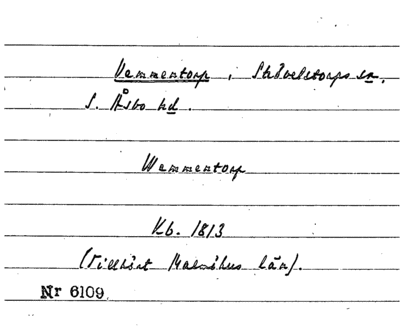 Vemmentorp, Strövelstorps sn.
S. Åsbo hd.
Wemmentorp
Kb. 1813
(Tillhört Malmöhus län).
Nr 6109